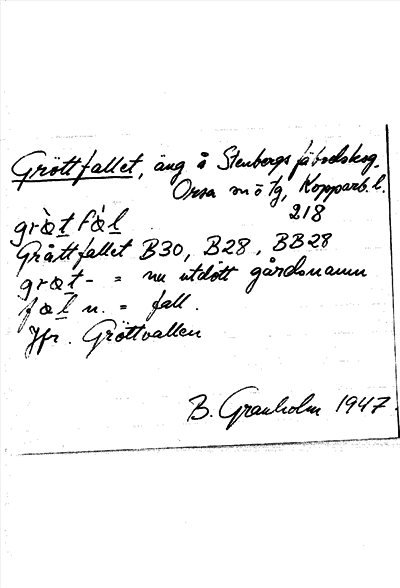 Gröttfallet, äng å Stenbergs fäbodskog.
Orsa sn ö Tg, Kopparb. l.
218
græ̀t fæ̀l
Gråttfallet B30, B28, BB28
græt- = nu utdött gårdsnamn
fæl n. = fall.
Jfr. Gröttvallen
B. Granholm 1947.